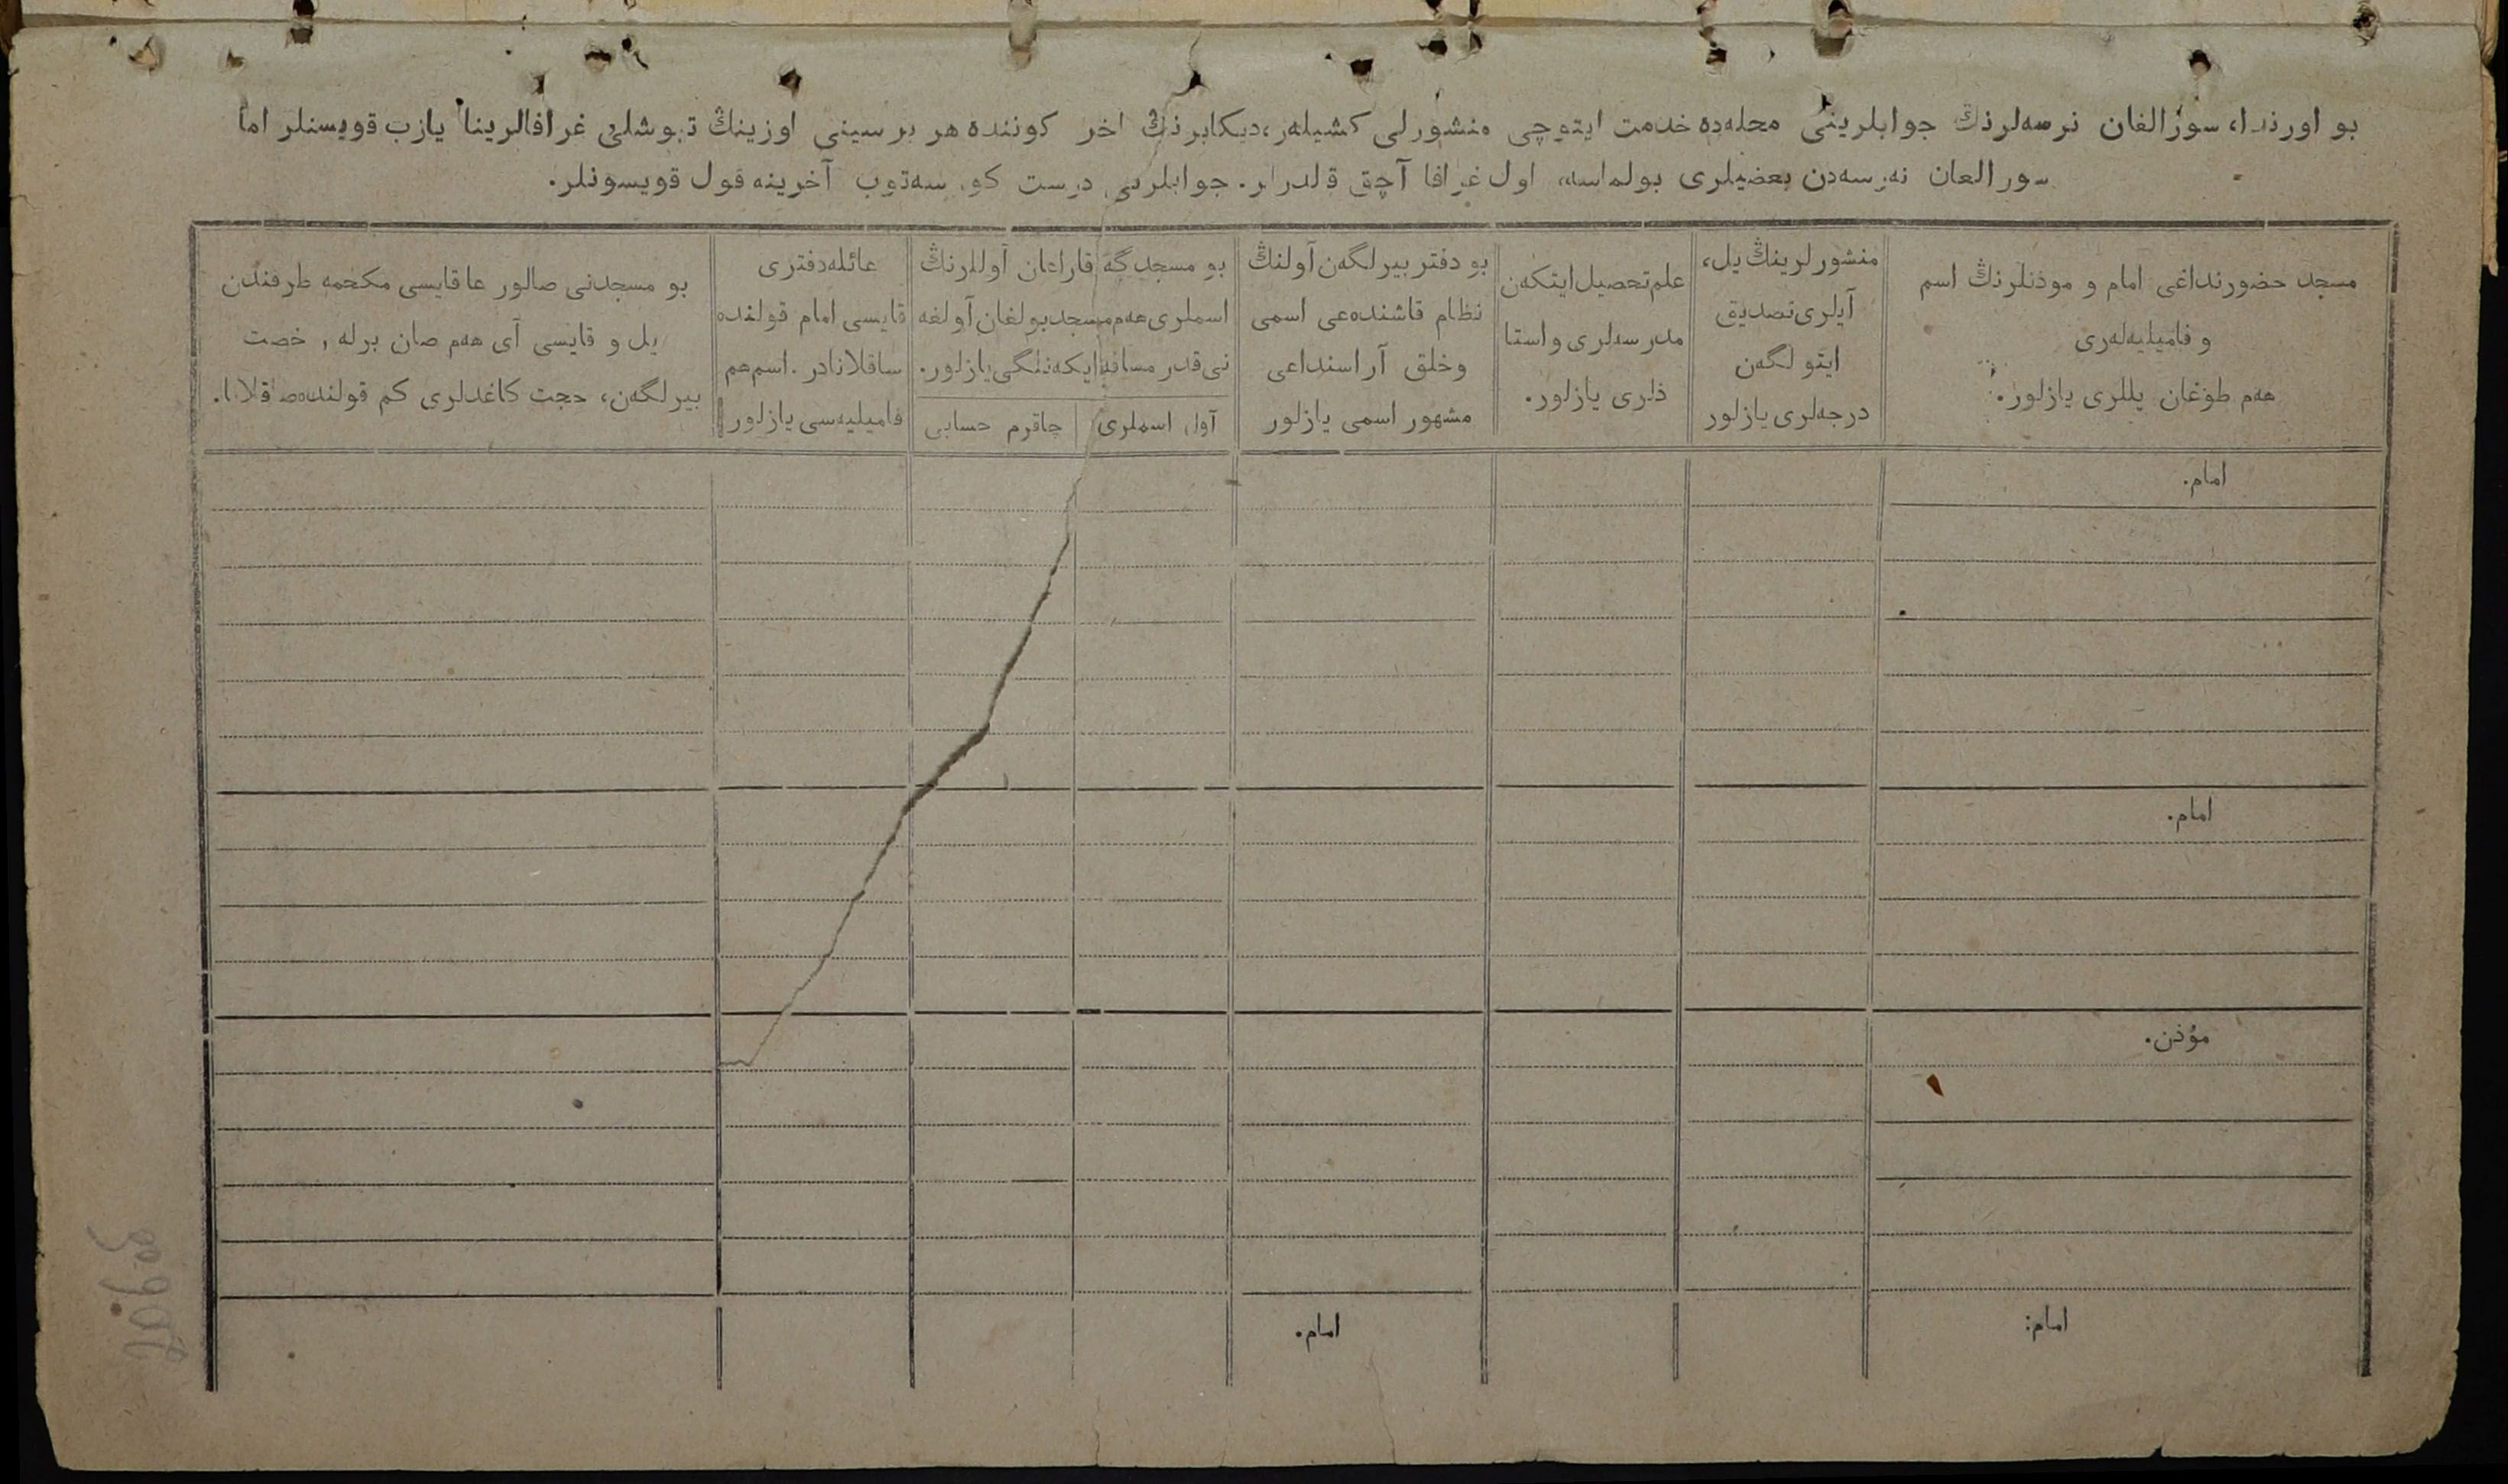 بو اورندا، سورالغان نرسه‌لرنڭ جوابلرینی محله‌ده خدمت ایتوچی منشورلی کشیله‌ر، دیکابرنڭ اخر کوننده هر بر سینی اوزینڭ تیوشلی غرافالرینا یازب قویسنلر اما
سورالغان نه‌رسه‌دن بعضیلری بولماسه، اول غرافا آچق قلدرلر. جوابلرنی درست کورسه‌توب آخرینه قول قویسونلر.
مسجد حضورنداغی امام و موذنلرنڭ اسم
و فامیلیه‌له‌ری
هه‌م طوغان یللری یازلور.
منشورلرینڭ یل،
آیلری تصدیق
ایتولگه‌ن
درجه‌لری یازلور
علم تحصیل ایتکه‌ن
مدرسه‌لری و استا
ذلری یازلور.
بو دفتر بیرلگه‌ن آولنڭ
نظام قاشنده‌عی اسمی
وخلق آراسنداعی
مشهور اسمی یازلور
بو مسجد گه قاراعان آوللرنڭ
اسملری هه‌م مسجد بولغان آولغه
نی قدر مسافه ایکه‌نلگی یازلور.
آول اسملری
چاقرم حسابی
عائله دفتری
قایسی امام قولنده
ساقلانادر. اسم هم
فامیلیه‌سی یازلور
بو مسجدنی صالور عا قایسی مکحمه طرفندن
یل و قایسی آی هه‌م صان برله , خصت
بیرلگه‌ن، حجت کاغدلری کم قولنده صاقلانا.
امام.
امام.
مؤذن.
امام:
امام.